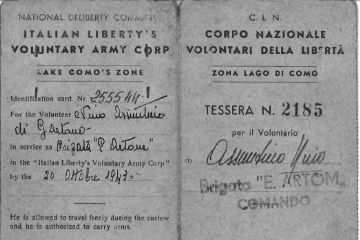 NATIONAL DELIBERTY COMMITTEE
ITALIAN LIBERTY'S
VOLUNTARY ARMY CORP
LAKE COMO'S ZONE
Identification card. Nr 255544
For the Volunteer Nino
di Gaetano
in service as Brigata "E. Artom"
in the "Italian Liberty's Voluntary Army Corp"
by the 20 Ottobre 1943
He is allowed to travel freely during the curfew
and is authorized to carry arms.
C. L. N.
CORPO NAZIONALE
VOLONTARI DELLA LIBERTÀ
ZONA LAGO DI COMO
TESSERA N. 2185
per il Volontario
Nino
Brigata "E. ARTOM"
COMANDO